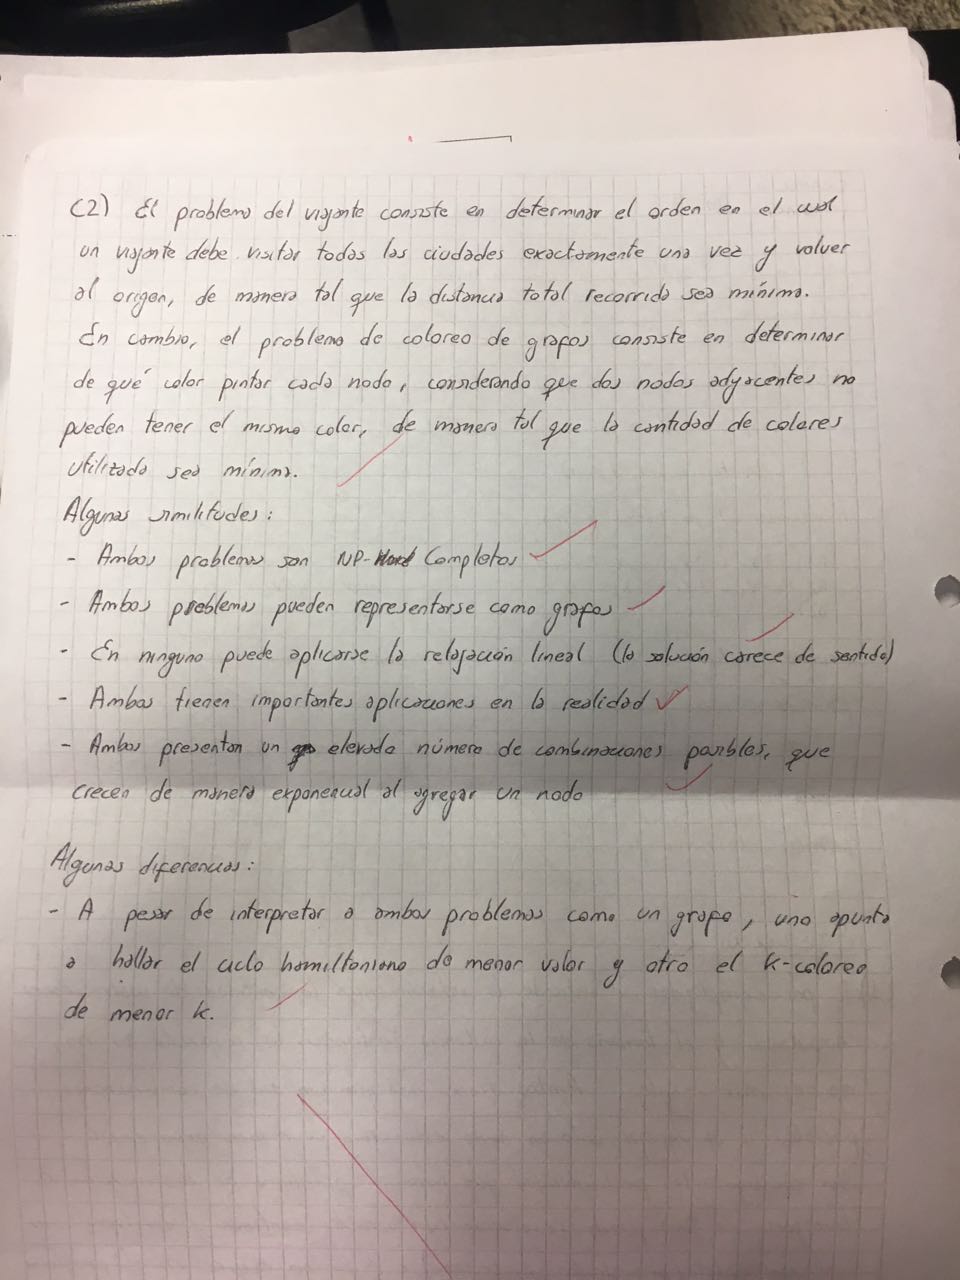 C2) El problema del viajante consiste en determinar el orden en el cual
un viajante debe visitar todas las ciudades exactamente una vez y volver
al origen, de manera tal que la distancia total recorrida sea mínima.
En cambio, el problema de coloreo de grafos consiste en determinar
de qué color pintar cada nodo, considerando que dos nodos adyacentes no
pueden tener el mismo color, de manera tal que la cantidad de colores
utilizada sea mínima.
Algunas similitudes:
- Ambos problemas son NP-Completos
- Ambos problemas pueden representarse como grafos
- En ninguno puede aplicarse la relajación lineal (la solución carece de sentido)
- Ambos tienen importantes aplicaciones en la realidad
- Ambos presentan un elevado número de combinaciones posibles, que
crecen de manera exponencial al agregar un nodo
Algunas diferencias:
- A pesar de interpretar a ambos problemas como un grafo, uno apunta
a hallar el ciclo hamiltoniano de menor valor y otro el k-coloreo
de menor k.